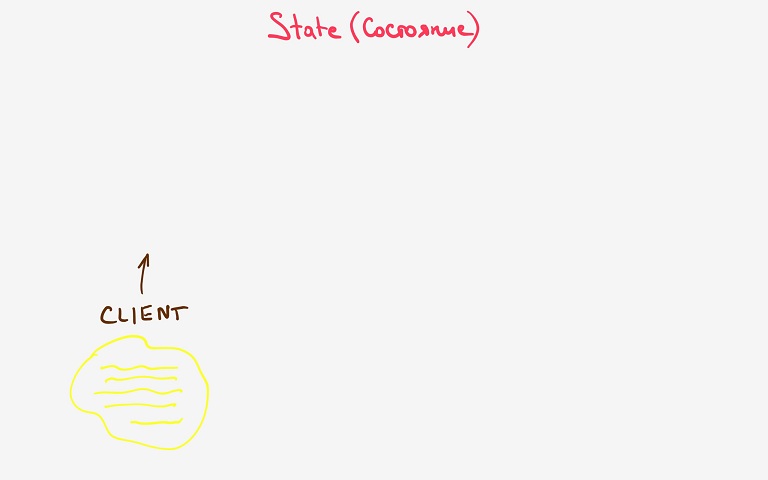 State (Состояние)
CLIENT